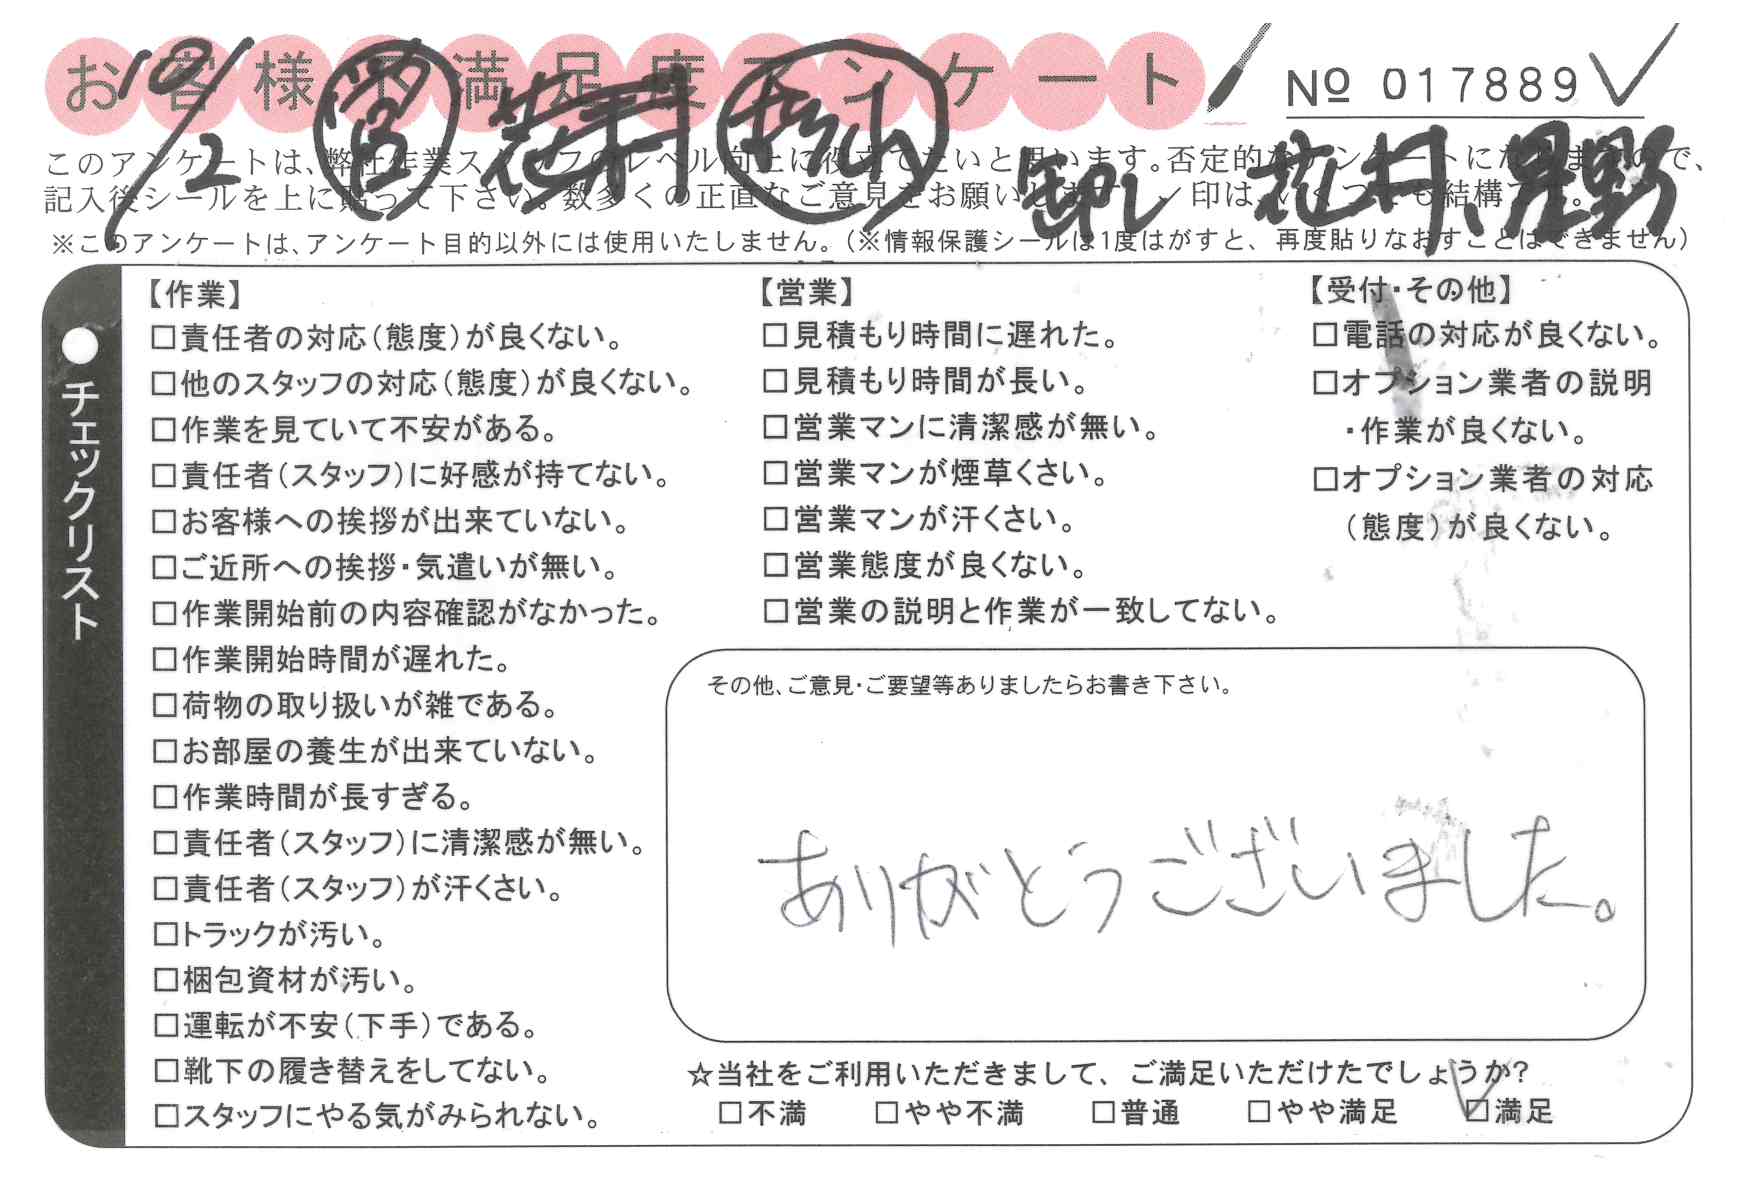 お客様不満足度アンケート
№ 017889
10/2 営 花村 松山 印 花村、星野
このアンケートは、弊社作業スタッフのレベル向上に役立てたいと思います。否定的なアンケートになりますので、
記入後シールを上に貼って下さい。数多くの正直なご意見をお願いします。✓印は、いくつでも結構です。
※このアンケートは、アンケート目的以外には使用いたしません。(※情報保護シールは1度はがすと、再度貼りなおすことはできません)
●チェックリスト
【作業】
□責任者の対応(態度)が良くない。
□他のスタッフの対応(態度)が良くない。
□作業を見ていて不安がある。
□責任者(スタッフ)に好感が持てない。
□お客様への挨拶が出来ていない。
□ご近所への挨拶・気遣いが無い。
□作業開始前の内容確認がなかった。
□作業開始時間が遅れた。
□荷物の取り扱いが雑である。
□お部屋の養生が出来ていない。
□作業時間が長すぎる。
□責任者(スタッフ)に清潔感が無い。
□責任者(スタッフ)が汗くさい。
□トラックが汚い。
□梱包資材が汚い。
□運転が不安(下手)である。
□靴下の履き替えをしてない。
□スタッフにやる気がみられない。
【営業】
□見積もり時間に遅れた。
□見積もり時間が長い。
□営業マンに清潔感が無い。
□営業マンが煙草くさい。
□営業マンが汗くさい。
□営業態度が良くない。
□営業の説明と作業が一致してない。
【受付・その他】
□電話の対応が良くない。
□オプション業者の説明
・作業が良くない。
□オプション業者の対応
(態度)が良くない。
その他、ご意見・ご要望等ありましたらお書き下さい。
ありがとうございました。
☆当社をご利用いただきまして、ご満足いただけたでしょうか?
□不満 □やや不満 □普通 □やや満足 ☑満足